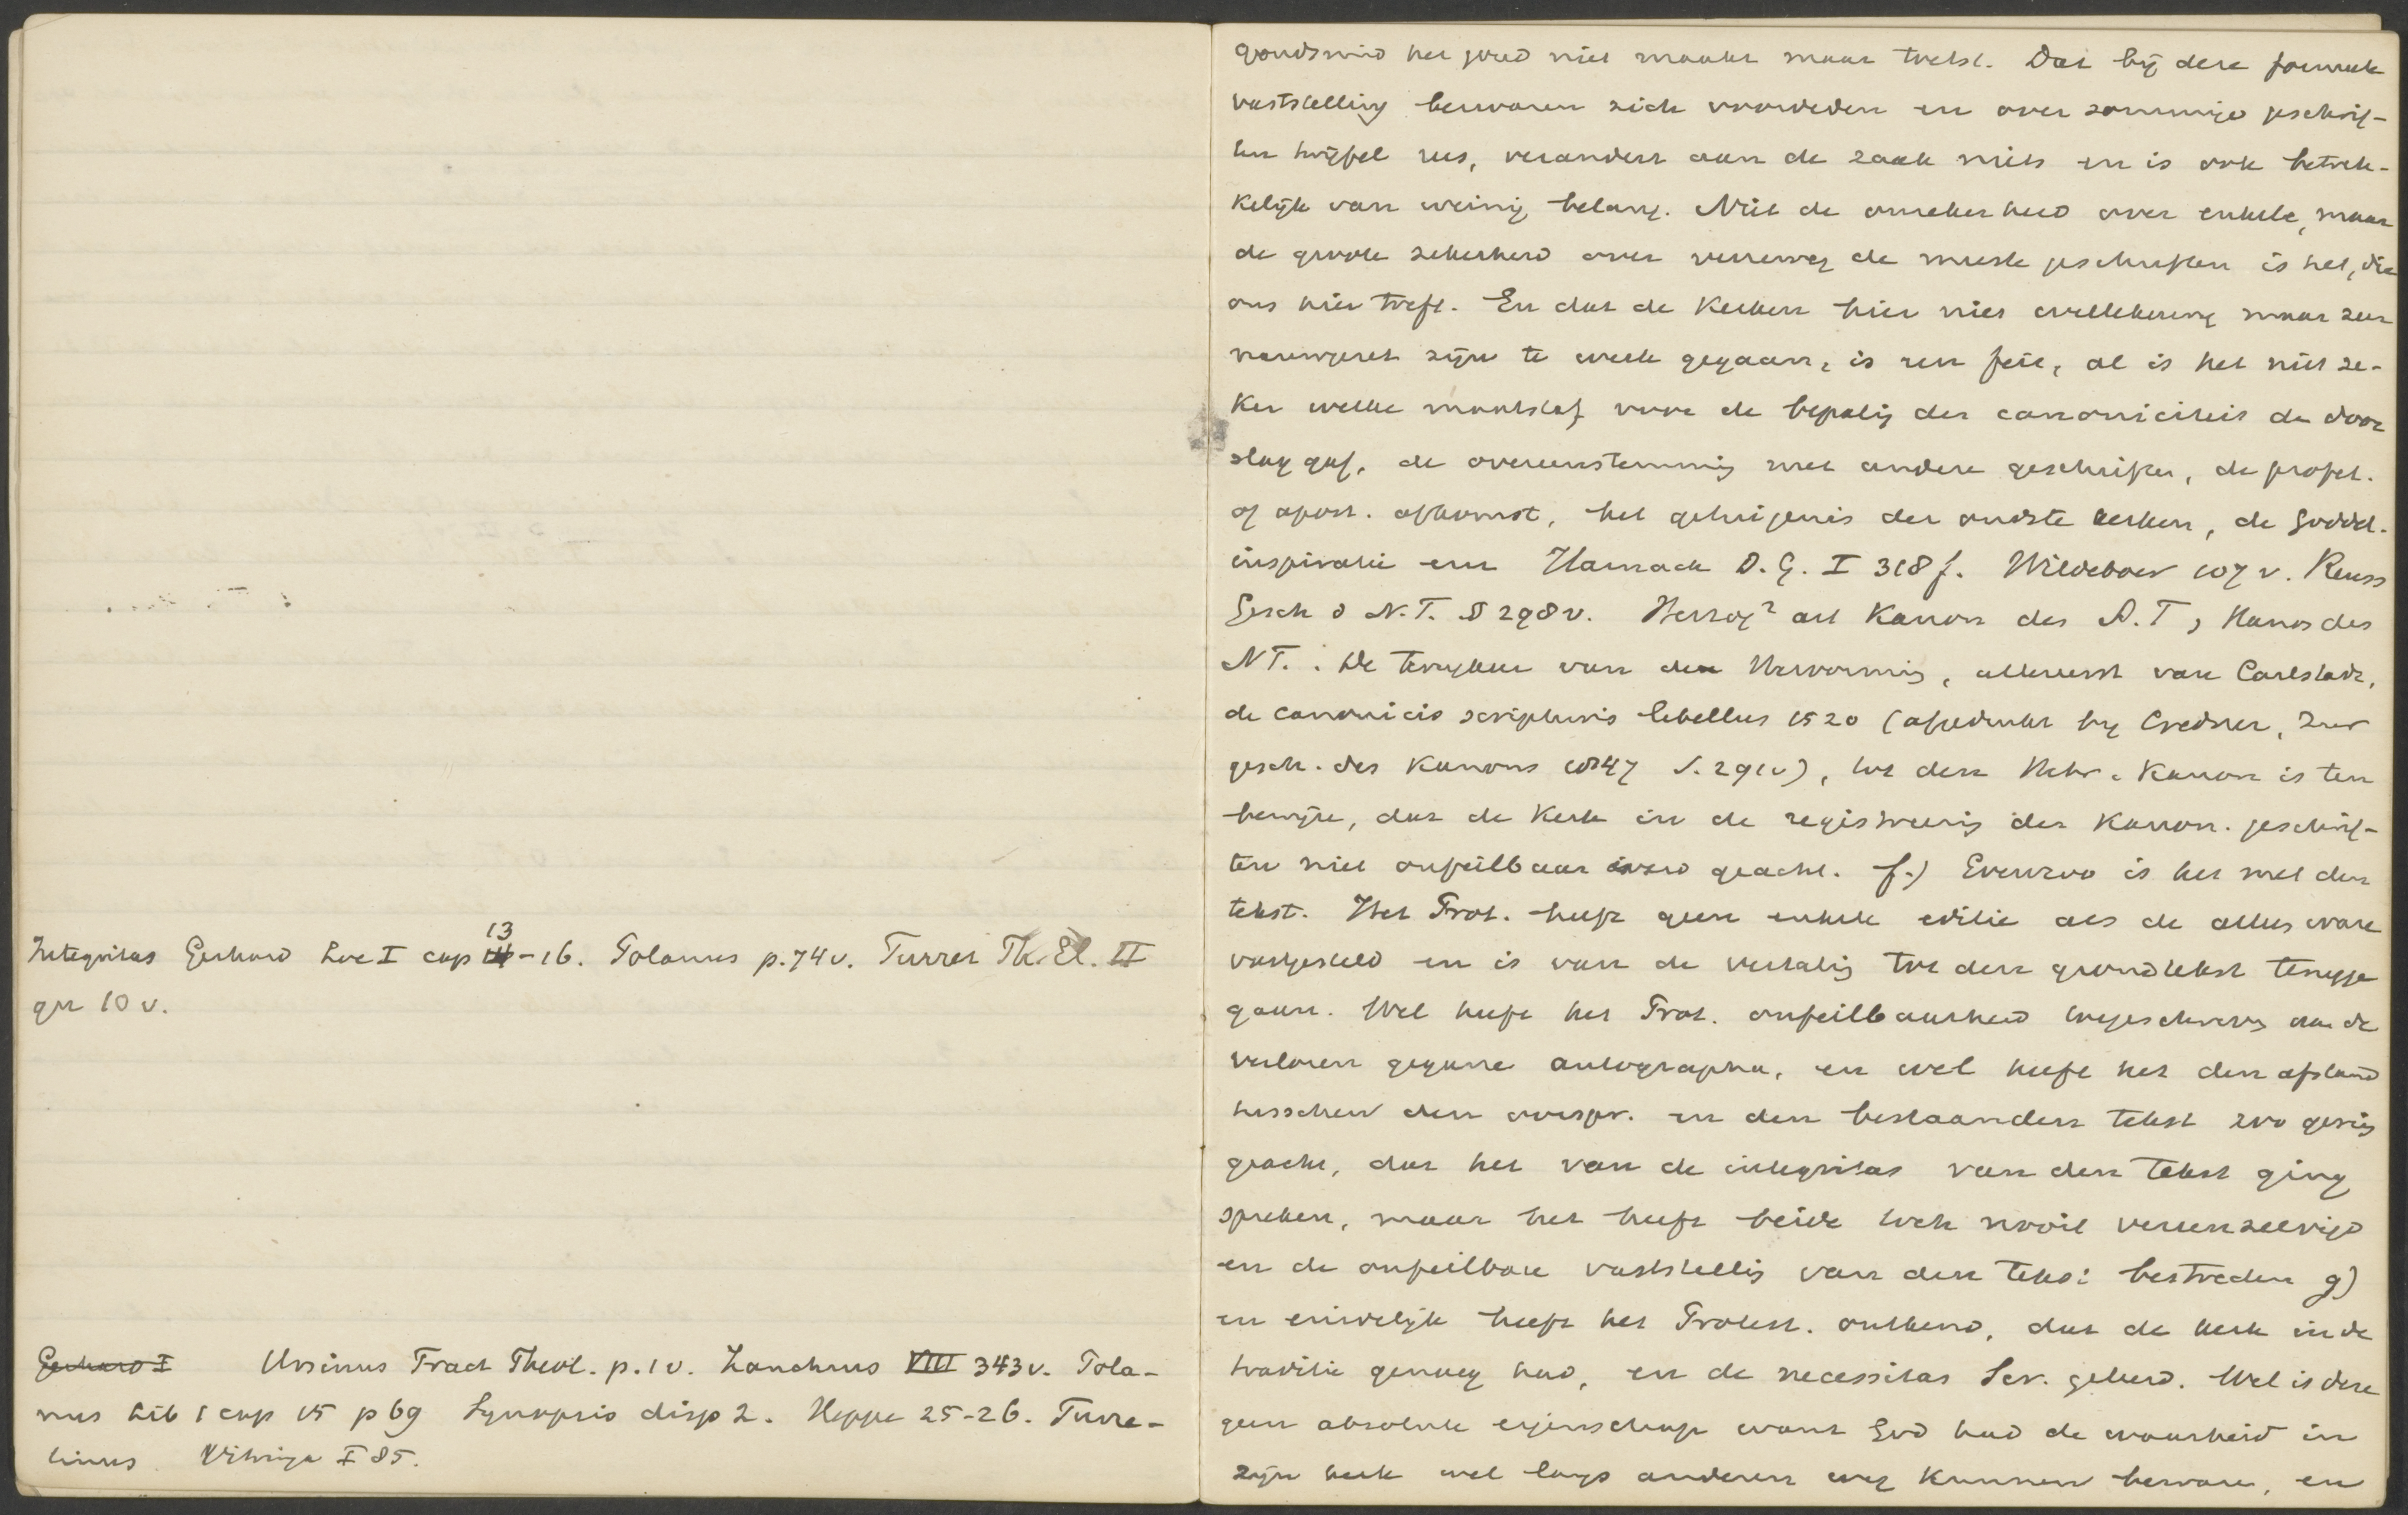 Integritas Gerhard Loc I cap 13-16. Polanus p.74v. Turret Th. El. II
qu 10 v.
Gerhard I Ursinus Tract Theol. p.1v. Zanchius VIII 343v. Pola-
nus Lib 1 cap 15 p 69 Synopsis disp 2. Heppe 25-26. Turre-
tinus Vitringa I 85.
goudsmid het goud niet maakt maar toetst. Dat bij deze formeele
vaststelling bezwaren zich voordeden en over sommige geschrif-
ten twijfel rees, verandert aan de zaak niets en is ook betrek-
kelijk van weinig belang. Niet de onzekerheid over enkele, maar
de groote zekerheid over verreweg de meeste geschriften is het, die
ons hier treft. En dat de Kerken hier niet willekeurig maar zeer
nauwgezet zijn te werk gegaan, is een feit, al is het niet ze-
ker welke maatstaf voor de bepaling der canoniciteit den door
slag gaf, de overeenstemming met andere geschriften, de profet.
of apost. afkomst, het getuigenis der oudste kerken, de Goddel.
inspiratie enz Harnack D.G. I 318 f. Wildeboer 107 v. Reuss
Gesch d N.T. § 298v. Herzog² art Kanon des A.T, Kanon des
NT. De terugkeer van de Hervorming, allereerst van Carlstadt,
de canonicis scripturis libellus 1520 (afgedrukt bij Credner, Zur
gesch. des Kanons 1847 S. 291v), tot den Hebr. Kanon is ten
bewijze, dat de Kerk in de registreering der Kanon. geschrif-
ten niet onfeilbaar werd geacht. f.) Evenzoo is het met den
tekst. Het Prot. heeft geen enkele editie als de alleen ware
vastgesteld en is van de vertaling tot den grondtekst terugge
gaan. Wel heeft het Prot. onfeilbaarheid toegeschreven aan de
verloren gegane autographa, en wel heeft het den afstand
tusschen den oorspr. en den bestaanden tekst zoo gering
geacht, dat het van de integritas van den tekst ging
spreken, maar het heeft beide toch nooit vereenzelvigd
en de onfeilbare vaststelling van den tekst bestreden g)
en eindelijk heeft het Protest. ontkend, dat de kerk in de
traditie genoeg had, en de necessitas Scr. geleerd. Wel is deze
geen absolute eigenschap want God had de waarheid in
zijn kerk wel langs anderen weg kunnen bewaren, en